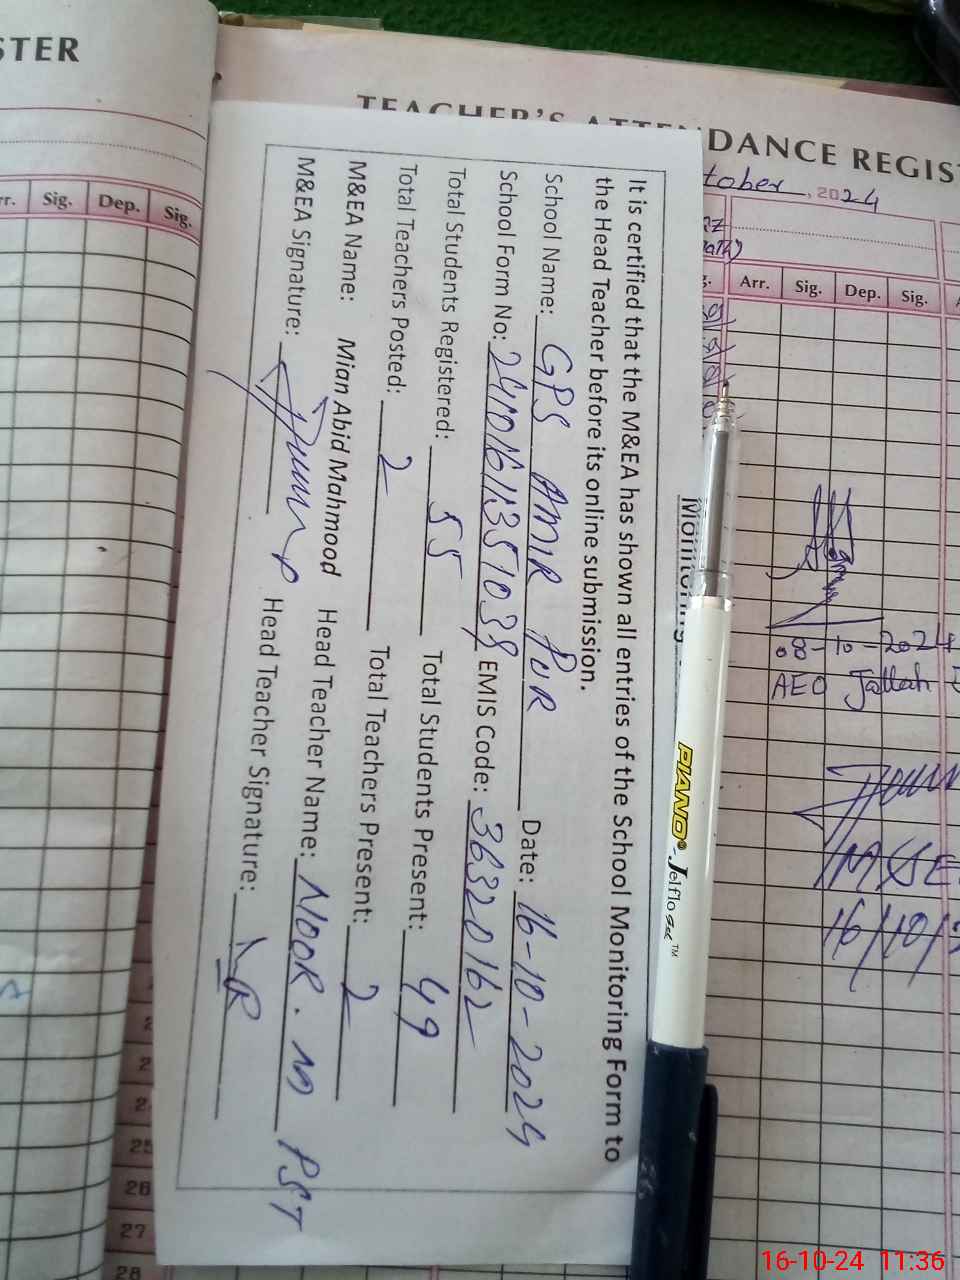 STER
TEACHER'S ATTENDANCE REGIST
tober, 2024
rr. Sig. Dep. Sig.
Arr. Sig. Dep. Sig.
Monitoring
It is certified that the M&EA has shown all entries of the School Monitoring Form to
the Head Teacher before its online submission.
School Name: GPS AMIR PUR Date: 16-10-2024
School Form No: EMIS Code: 36320162
Total Students Registered: 55 Total Students Present: 49
Total Teachers Posted: 2 Total Teachers Present: 2
M&EA Name: Mian Abid Mahmood Head Teacher Name: NOOR. M PST
M&EA Signature: Head Teacher Signature:
PIANO® Jelflo Gel™
08-10-2024
AEO Jallah
16/10/
25
26
27
28
16-10-24 11:36